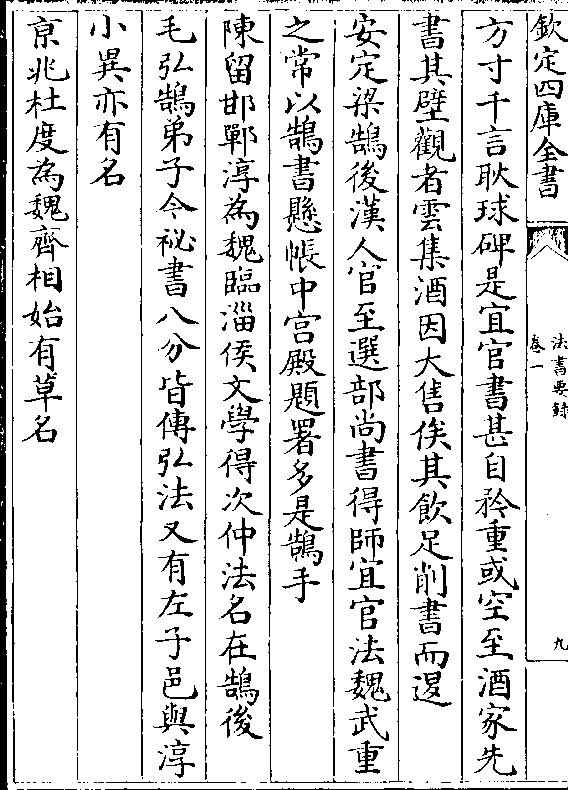 欽定四庫全書
法書要錄
卷一
九
方寸千言耿球碑是宜官書甚自矜重或空至酒家先
書其壁觀者雲集酒因大售俟其飲足削書而退
安定梁鵠後漢人官至選部尚書得師宜官法魏武重
之常以鵠書懸帳中宫殿題署多是鵠手
陳留邯鄲淳為魏臨淄侯文學得次仲法名在鵠後
毛弘鵠弟子今祕書八分皆傳弘法又有左子邑與淳
小異亦有名
京兆杜度為魏齊相始有草名